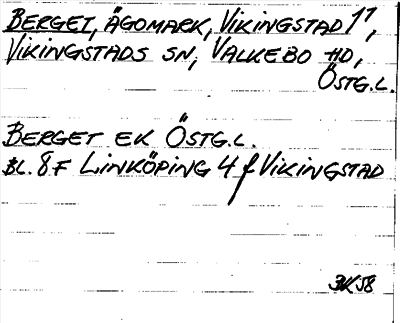 BERGET, ÄGOMARK, VIKINGSTAD 1¹,
VIKINGSTADS SN, VALKEBO HD,
ÖSTG.L.
BERGET EK ÖSTG.L.
BL. 8F LINKÖPING 4 f VIKINGSTAD